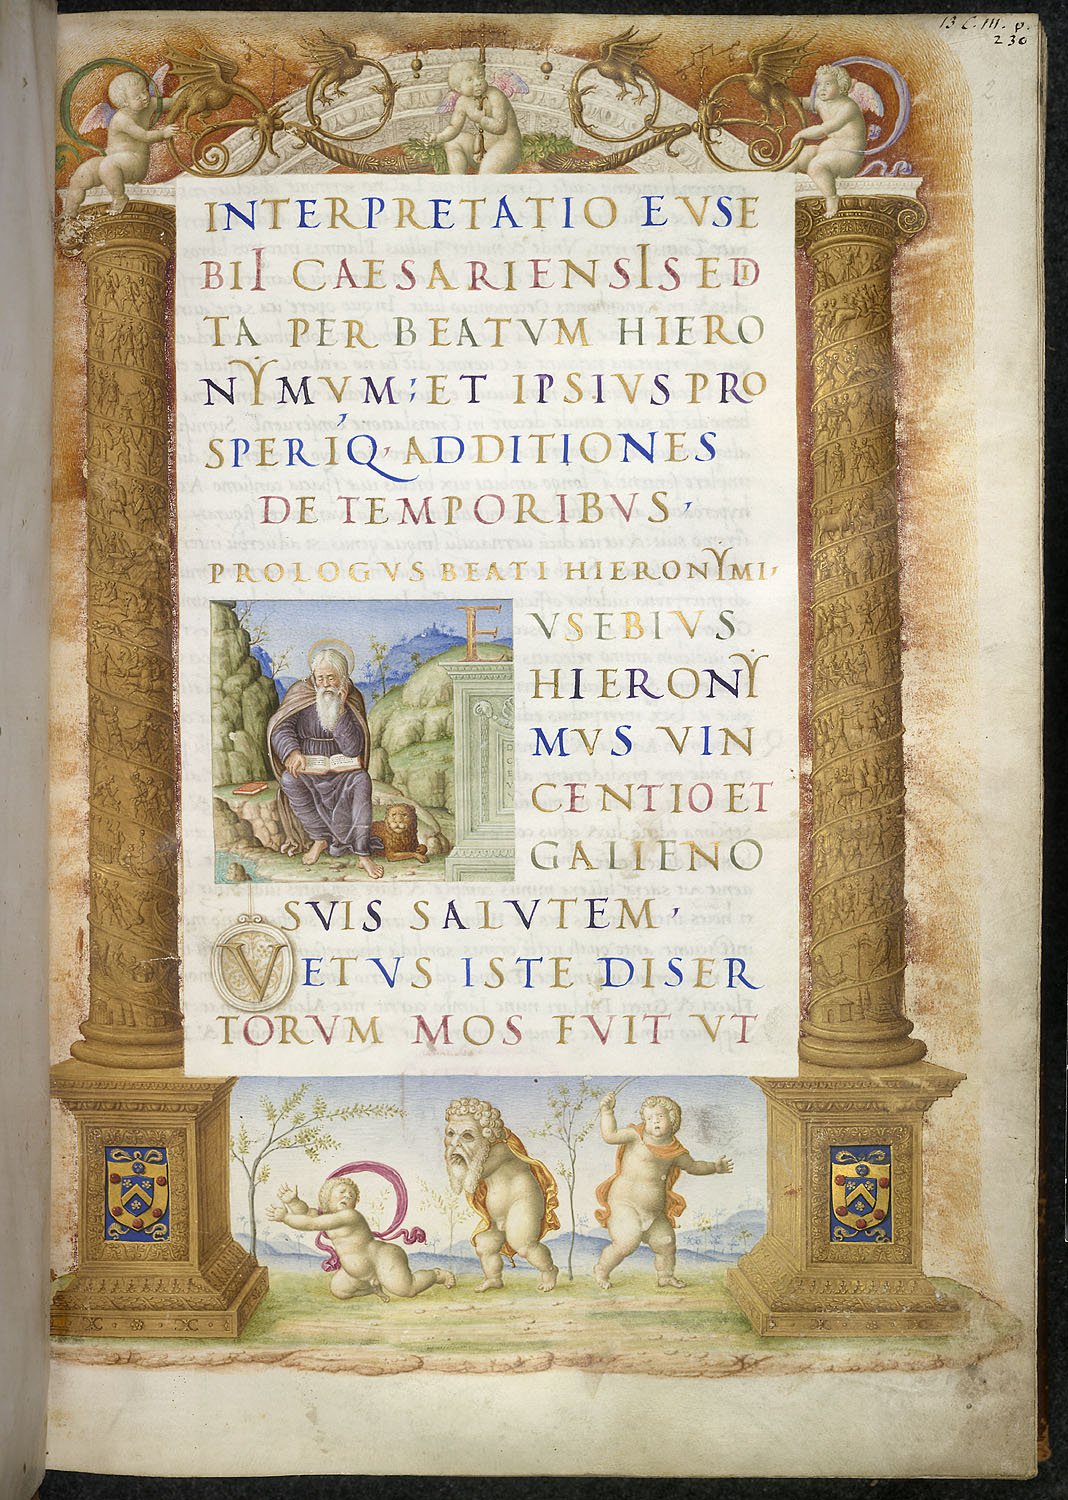 13 C. III. p.
230
2
INTERPRETATIO EVSE
BII CAESARIENSIS EDI
TA PER BEATVM HIERO
NYMVM; ET IPSIVS PRO
SPERIQ, ADDITIONES
DE TEMPORIBVS,
PROLOGVS BEATI HIERONYMI,
EVSEBIVS
HIERONY
MVS VIN
CENTIO ET
GALIENO
SVIS SALVTEM,
VETVS ISTE DISER
TORVM MOS FVIT VT